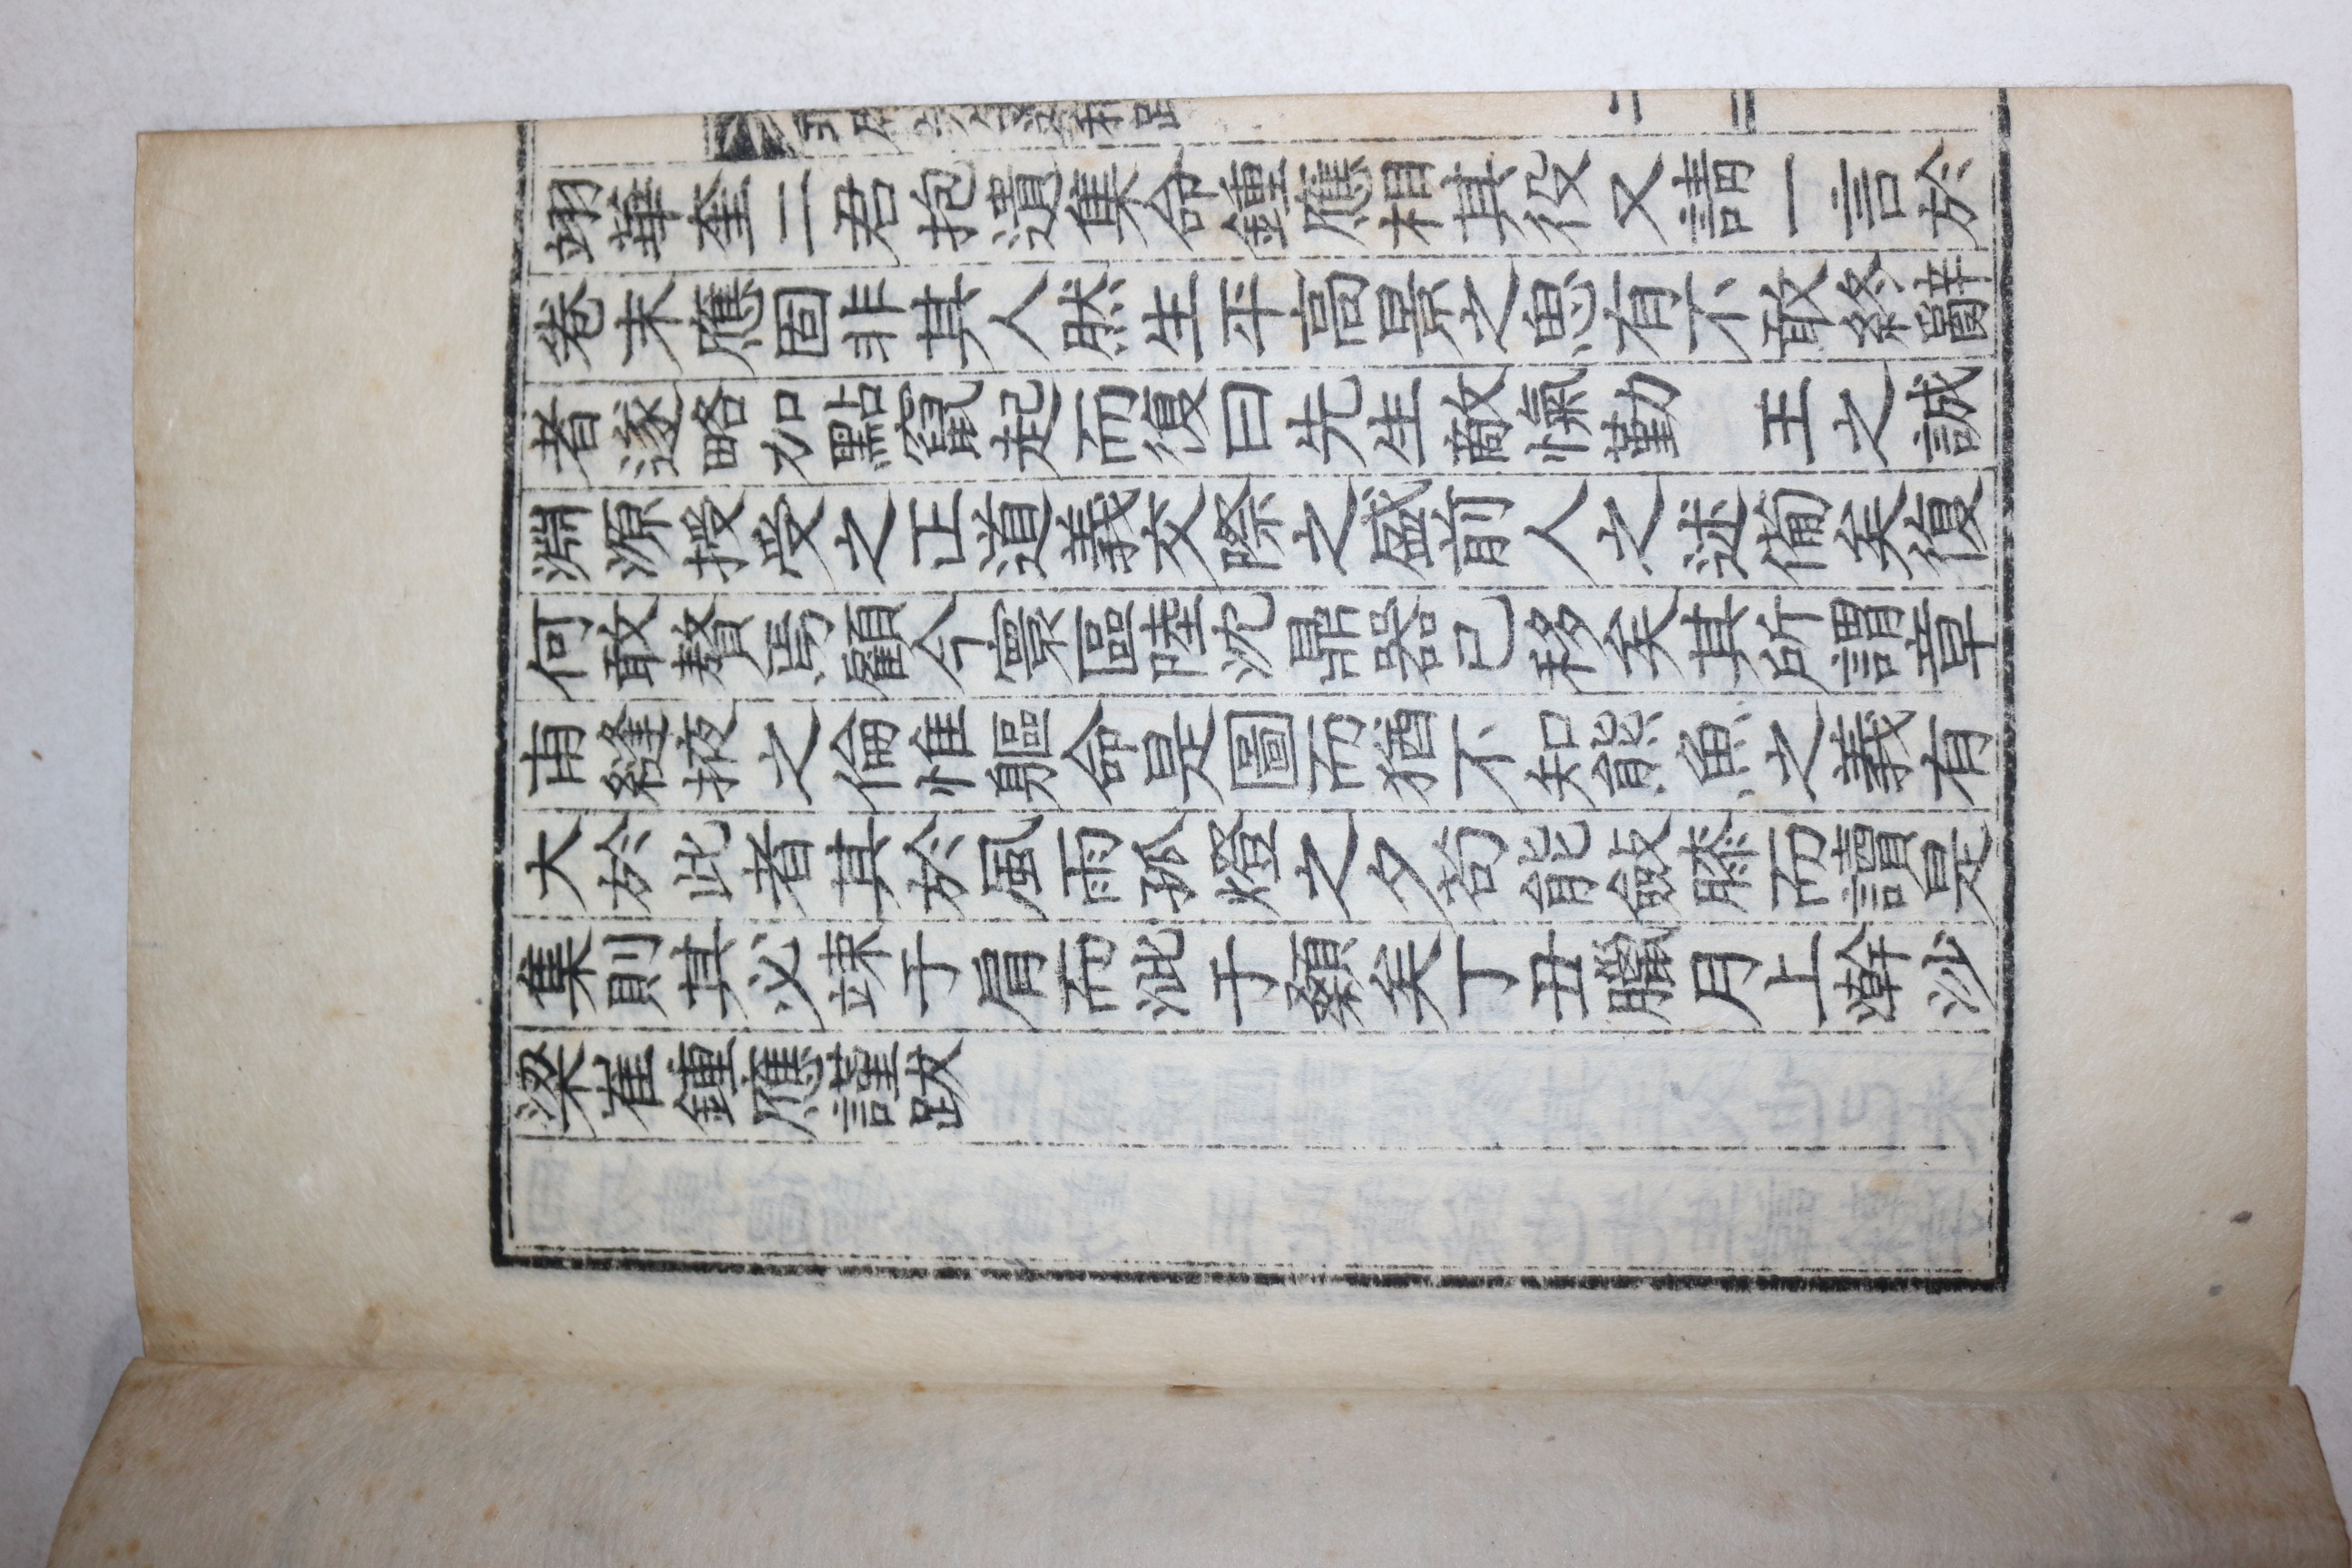 翊華奎二君抱遺集命鍾應相其役又請一言於
卷末應固非其人然生平高景之思有不敢終辭
者遂略加點竄起而復曰先生敵愾勤 王之誠
淵源授受之正道義交際之盛前人之述備矣復
何敢贅焉顧今寰區陸沈鼎器已移矣其所謂章
甫縫掖之倫惟軀命是圖而猶不知熊魚之義有
大於此者其於風雨孤燈之夕苟能斂膝而讀是
集則其必竦于肩而泚于顙矣丁丑臘月上澣沙
梁崔鍾應謹跋
二